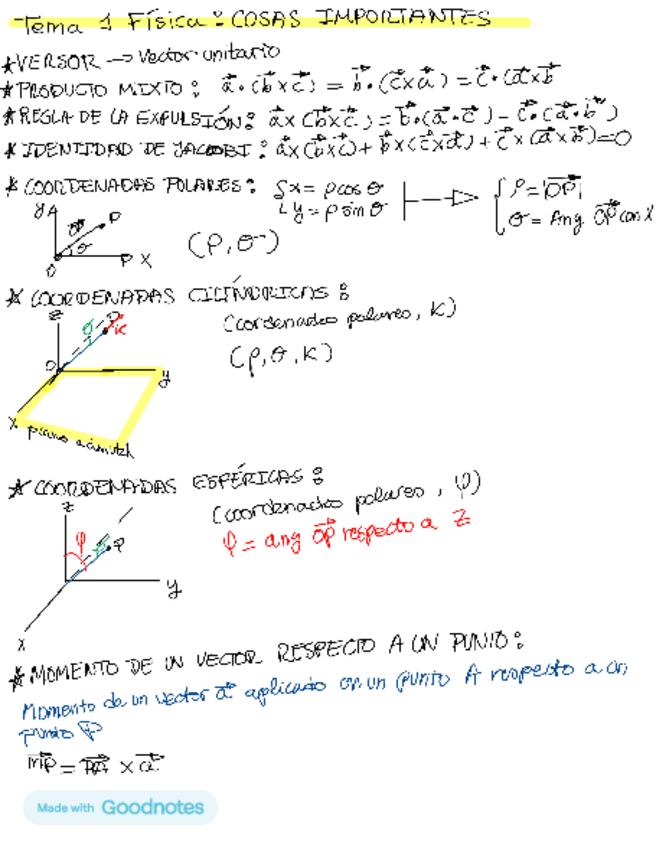 Tema 1 Física: COSAS IMPORTANTES
★VERSOR → Vector unitario
★PRODUCTO MIXTO: a⃗·(b⃗×c⃗) = b⃗·(c⃗×a⃗) = c⃗·(a⃗×b⃗
★REGLA DE LA EXPULSIÓN: a⃗×(b⃗×c⃗) = b⃗·(a⃗·c⃗) - c⃗·(a⃗·b⃗)
★IDENTIDAD DE JACOBI: a⃗×(b⃗×c⃗) + b⃗×(c⃗×a⃗) + c⃗×(a⃗×b⃗) = 0
★COORDENADAS POLARES: { x = ρ cos θ ⊢→ { ρ = |OP⃗|
y = ρ sin θ θ = Ang OP⃗ con X
y OP⃗ P
θ
O P X
(ρ, θ)
★ COORDENADAS CILÍNDRICAS:
(coordenadas polares, K)
(ρ, θ, K)
z θ P K
O y
X plano azimutal
★ COORDENADAS ESFÉRICAS:
(coordenadas polares, φ)
φ = ang OP⃗ respecto a Z
z
φ θ P
y
X
★ MOMENTO DE UN VECTOR RESPECTO A UN PUNTO:
Momento de un vector a⃗ aplicado en un punto A respecto a un
punto P
mp⃗ = PA⃗ × a⃗
Made with Goodnotes